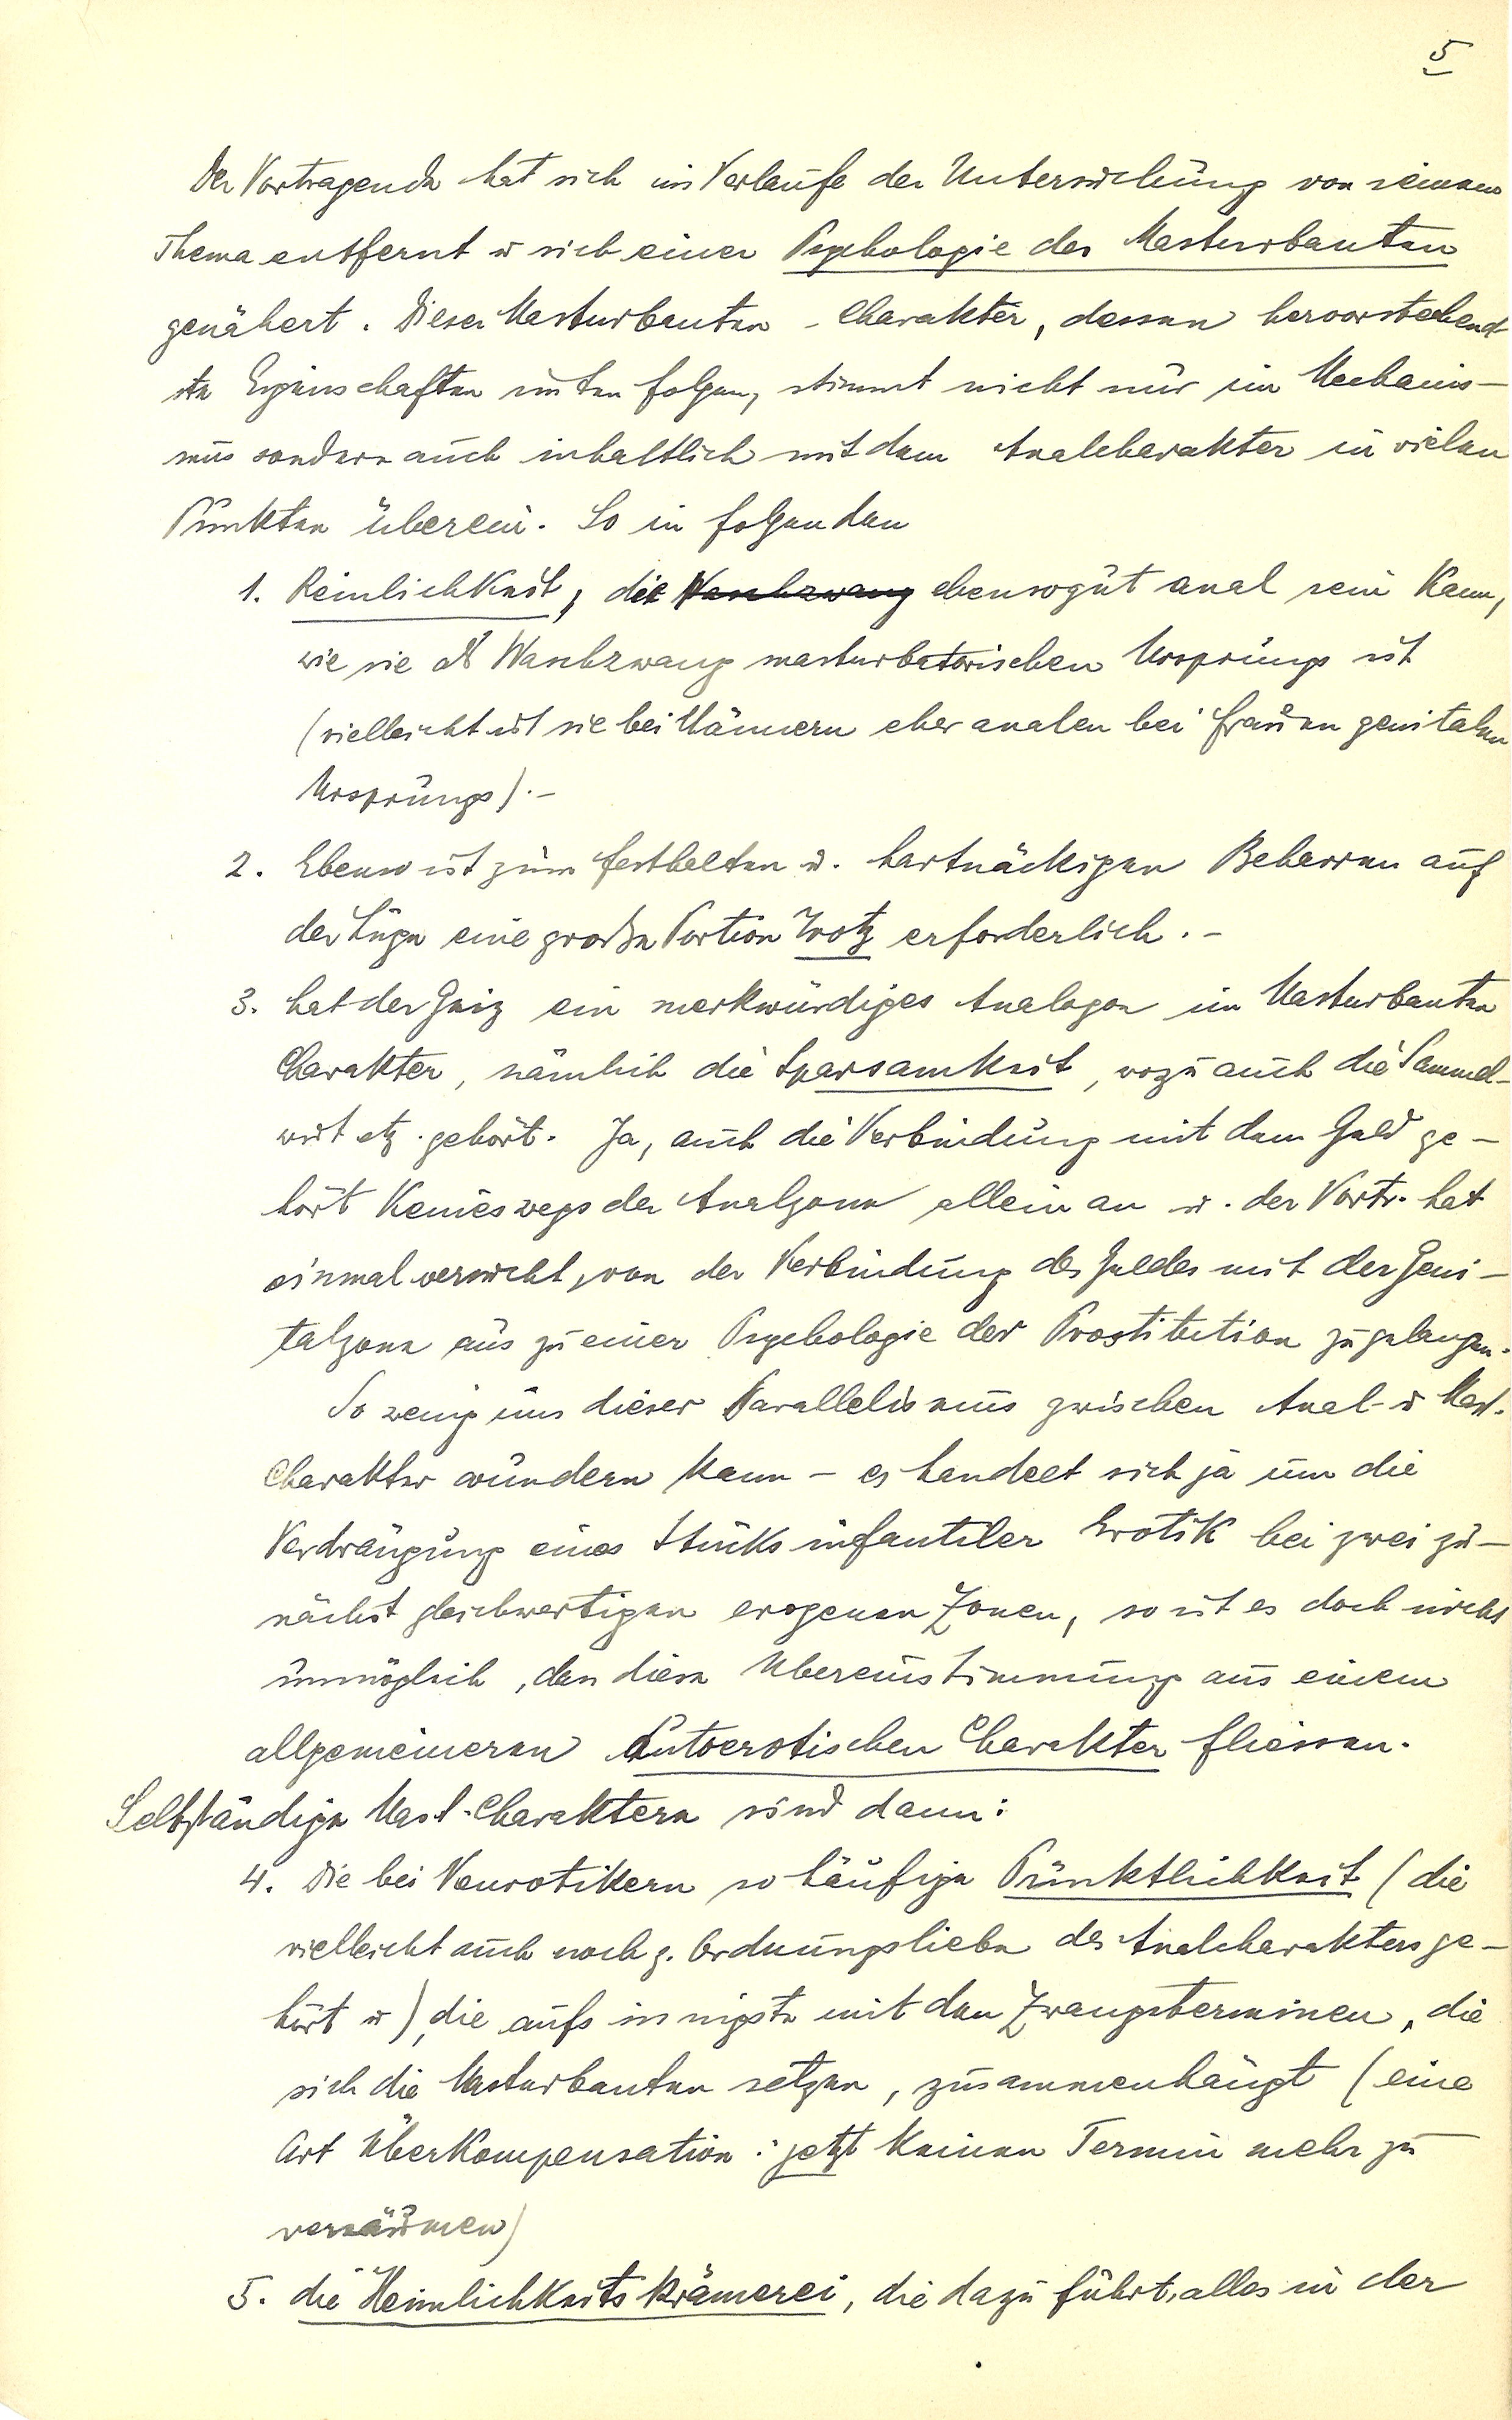 5
Der Vortragende hat sich im Verlaufe der Untersuchung von seinem
Thema entfernt u sich einer Psychologie des Masturbanten
genähert. Dieser Masturbanten-Charakter, dessen hervorstechend-
ste Eigenschaften unten folgen, stimmt nicht nur im Mechanis-
mus sondern auch inhaltlich mit dem Analcharakter in vielen
Punkten überein. So in folgenden
1. Reinlichkeit, die Waschzwang ebensogut anal sein kann,
wie sie als Waschzwang masturbatorischen Ursprungs ist
(vielleicht ist sie bei Männern eher analen bei Frauen genitalen
Ursprungs).-
2. Ebenso ist zum Festhalten u. hartnäckigen Beharren auf
der Lüge eine große Portion Trotz erforderlich.-
3. hat der Geiz ein merkwürdiges Analogon im Masturbanten
Charakter, nämlich die Sparsamkeit, wozu auch die Sammel-
wut etz. gehört. Ja, auch die Verbindung mit dem Geld ge-
hört keineswegs der Analzone allein an u. der Vortr. hat
einmal versucht, von der Verbindung des Geldes mit der Geni-
talzone aus zu einer Psychologie der Prostitution zu gelangen.
So wenig uns dieser Parallelismus zwischen Anal- u Mast.
Charakter wundern kann - es handelt sich ja um die
Verdrängung eines Stücks infantiler Erotik bei zwei zu-
nächst gleichwertigen erogenen Zonen, so ist es doch nicht
unmöglich, das diese Übereinstimmung aus einem
allgemeineren Autoerotischen Charakter fliessen.
Selbständige Mast.-Charaktere sind dann:
4. Die bei Neurotikern so häufige Pünktlichkeit (die
vielleicht auch noch z. Ordnungsliebe des Analcharakters ge-
hört u), die aufs innigste mit den Zwangsterminen, die
sich die Masturbanten setzen, zusammenhängt (eine
Art Überkompensation: jetzt keinen Termin mehr zu
versäumen)
5. die Heimlichkeitskrämerei, die dazu führt, alles in der